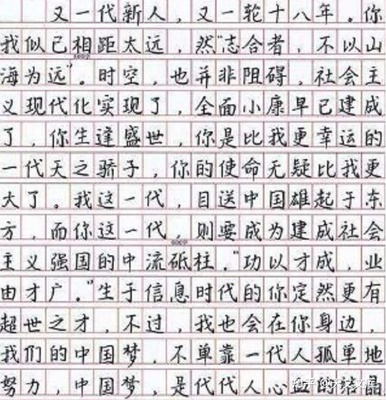 又一代新人，又一轮十八年。你
我似已相距太远，然“志合者，不以山
海为远”。时空，也并非阻碍，社会主
义现代化实现了，全面小康早已建成
了，你生逢盛世，你是比我更幸运的
一代天之骄子，你的使命无疑比我更
大了。我这一代，目送中国雄起于东
方，而你这一代，则要成为建成社会
主义强国的中流砥柱。“功以才成，业
由才广。”生于信息时代的你定然更有
超世之才，不过，我也会在你身边，
我们的中国梦，不单靠一代人孤单地
努力，中国梦，是代代人心血的结晶